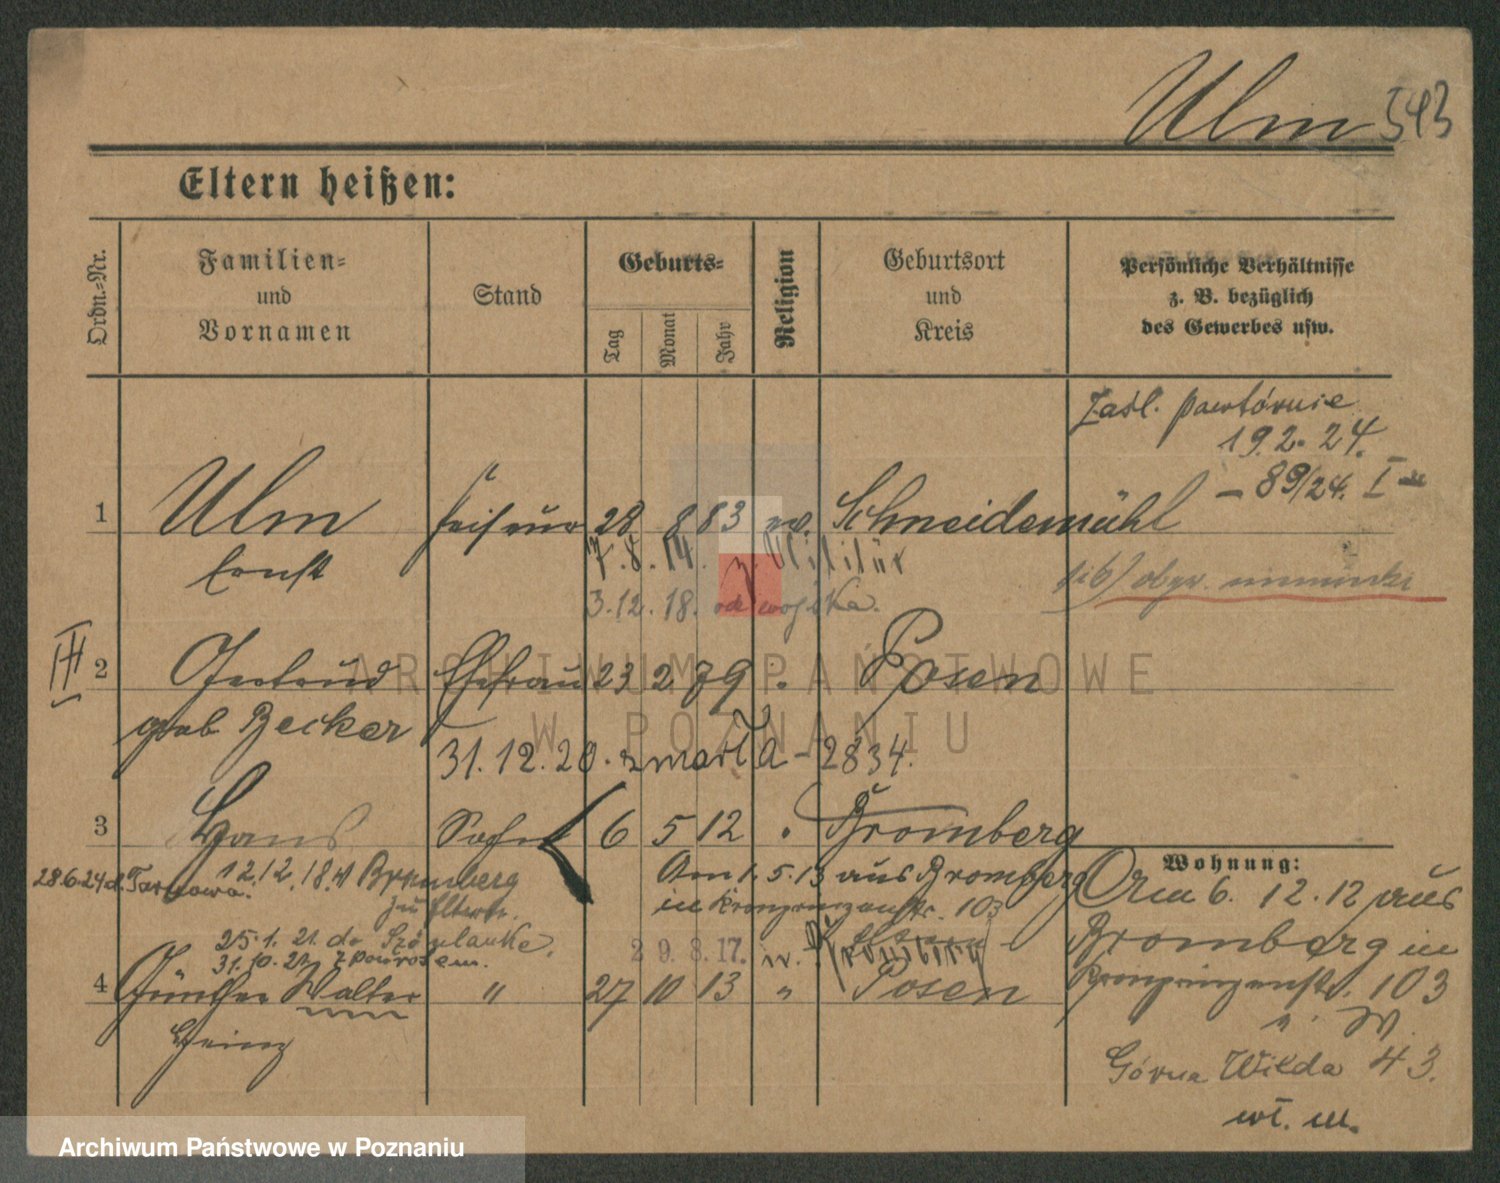 Ulm 543
Eltern heißen:
Ordn.-Nr.
Familien-
und
Vornamen
Stand
Geburts-
Tag
Monat
Jahr
Religion
Geburtsort
und
Kreis
Persönliche Verhältnisse
z. B. bezüglich
des Gewerbes usw.
19.2.24.
– 89/24. I
1 Ulm Friseur 28 8 83 ev. Schneidemühl
Ernst
7.8.14. z. Militär
3.12.18. od wojska.
III
2 Gertrud Ehefrau 23 2 79 Posen
geb Becker
31.12.20. zmarła – 2834.
3 Hans Sohn 6 5 12 Bromberg
28.6.24 d. Tarnowa. 12.12.18. Bromberg
zu Eltern.
Am 1.5.13 aus Bromberg
in Kronprinzenstr. 103
25.1.21. do
31.10.21. z powrotem.
29.8.17. n. Kronberg
4 Günther Walter " 27 10 13 " Posen
Heinz
Wohnung:
Am 6.12.12 aus
Bromberg in
Kronprinzenstr. 103
Górna Wilda 43.
wł. m.
ARCHIWUM PAŃSTWOWE
W POZNANIU
Archiwum Państwowe w Poznaniu